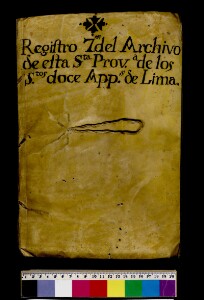 Registro 7º del Archivo
de esta Sta Prov.a de los
S.tos doce App.s de Lima.